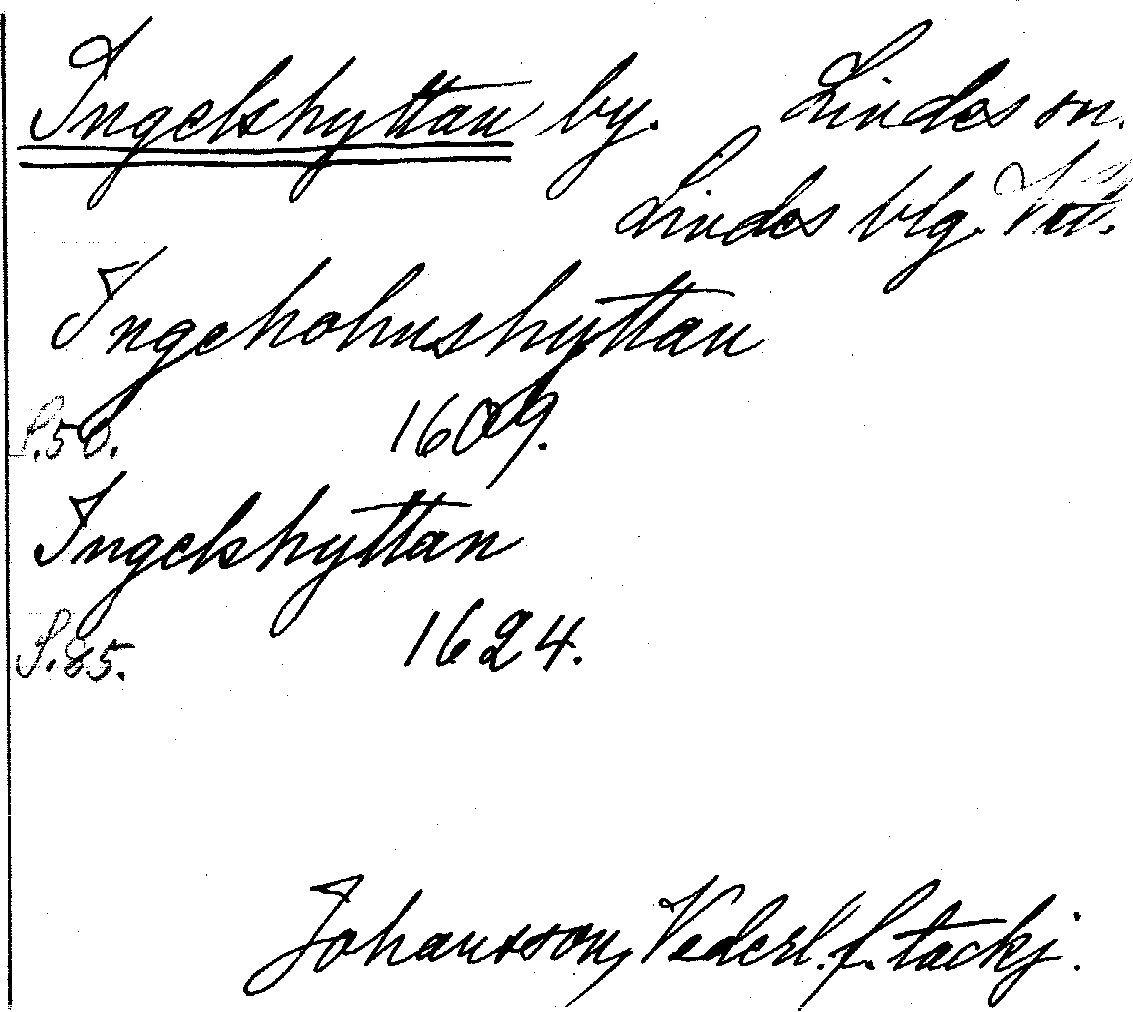 Ingelshyttan by. Lindes sn.
Lindes blg. Vstl.
Ingeholmshyttan
S.50. 1609.
Ingelshyttan
S.85. 1624.
Johansson, Vederl. f. tackj.